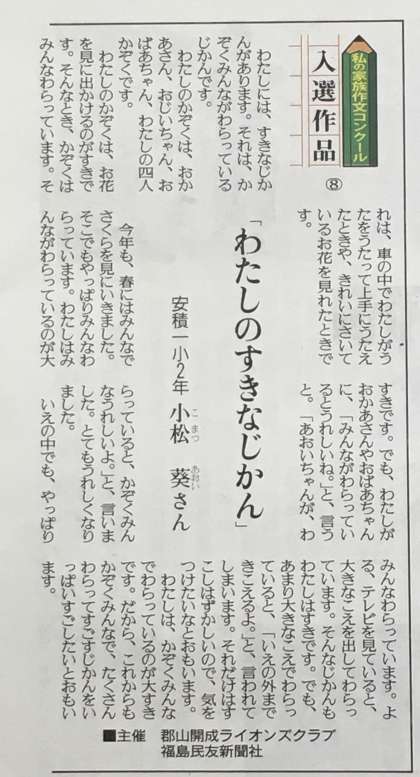 私の家族作文コンクール
入選作品
⑧
「わたしのすきなじかん」
安積一小2年 小松 葵さん
こまつ
あおい
わたしには、すきなじか
んがあります。それは、か
ぞくみんながわらっている
じかんです。
わたしのかぞくは、おか
あさん、おじいちゃん、お
ばあちゃん、わたしの四人
かぞくです。
わたしのかぞくは、お花
を見に出かけるのがすきで
す。そんなとき、かぞくは
みんなわらっています。そ
れは、車の中でわたしがう
たをうたって上手にうたえ
たときや、きれいにさいて
いるお花を見れたときで
す。
今年も、春にはみんなで
さくらを見にいきました。
そこでもやっぱりみんなわ
らっています。わたしはみ
んながわらっているのが大
すきです。でも、わたしが
おかあさんやおばあちゃん
に、「みんながわらってい
るとうれしいね。」と、言う
と。「あおいちゃんが、わ
らっていると、かぞくみん
なうれしいよ。」と、言いま
した。とてもうれしくなり
ました。
いえの中でも、やっぱり
みんなわらっています。よ
る、テレビを見ていると、
大きなこえを出してわらっ
ています。そんなじかんも
わたしはすきです。でも、
あまり大きなこえでわらっ
ていると、「いえの外まで
きこえるよ。」と、言われて
しまいます。それだけはす
こしはずかしいので、気を
つけたいなとおもいます。
わたしは、かぞくみんな
でわらっているのが大すき
です。だから、これからも
かぞくみんなで、たくさん
わらってすごすじかんをい
っぱいすごしたいとおもい
ます。
■主催 郡山開成ライオンズクラブ
福島民友新聞社